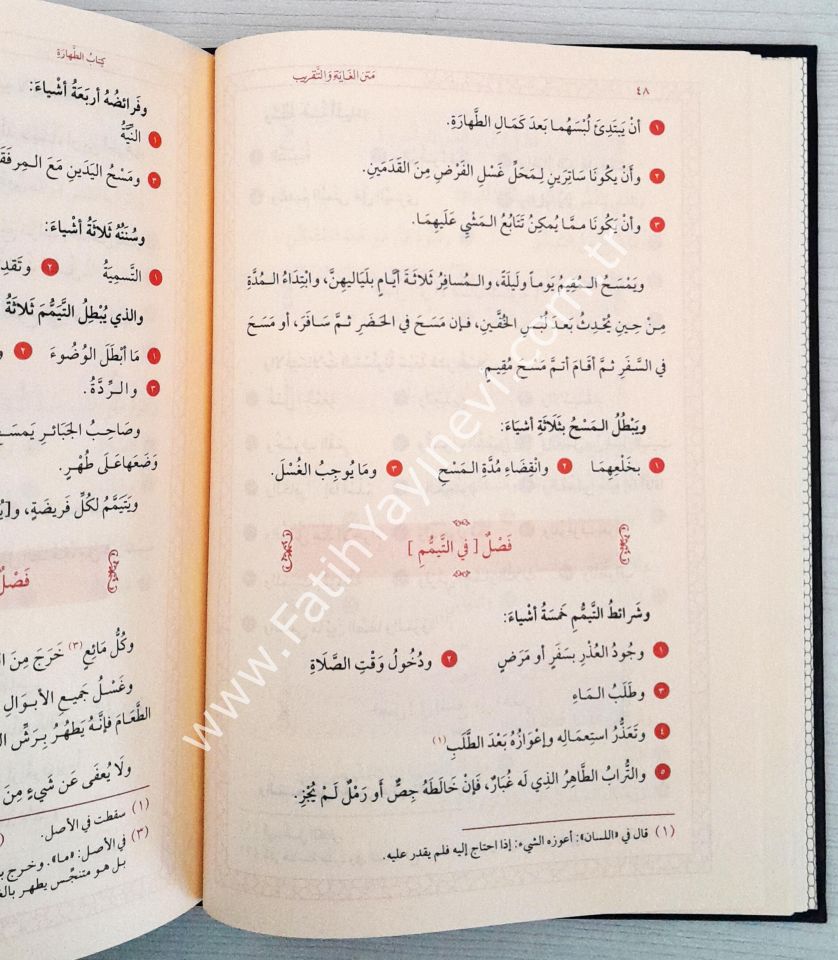 ٤٨
مَتن الغَايَة وَالتَّقريب
١ أنْ يَبْتَدِئَ لُبْسَهُما بَعدَ كَمَالِ الطَّهارَةِ.
٢ وأَنْ يكُونَا سَاتِرَينِ لِمَحَلِّ غَسْلِ الفَرْضِ مِنَ القَدَمَينِ.
٣ وأنْ يَكُونَا ممَّا يُمكِنُ تَتَابُعُ المَشْيِ عَلَيهِمَا.
ويَمْسَحُ المُقِيمُ يَوماً ولَيلَةً، والمُسافِرُ ثَلاثَةَ أيَّامٍ بلَيَاليهِنَّ، وابْتِدَاءُ المُدَّةِ
مِنْ حِينِ يُحْدِثُ بَعدَ لُبْسِ الخُفَّينِ، فإن مَسَحَ في الحَضَرِ ثمَّ سَافَرَ، أو مَسَحَ
في السَّفَرِ ثمَّ أقَامَ أتمَّ مَسْحَ مُقِيمٍ.
ويَبْطُلُ المَسْحُ بثَلاثَةِ أشْياءَ:
١ بخَلْعِهِمَا ٢ وانْقِضَاءِ مُدَّةِ المَسْحِ ٣ ومَا يُوجِبُ الغُسْلَ.
فَصْلٌ [في التَّيمُّمِ]
وشَرائطُ التَّيمُّمِ خَمسَةُ أشْياءَ:
١ وجُودُ العُذْرِ بسَفَرٍ أو مَرَضٍ ٢ ودُخُولُ وَقْتِ الصَّلَاةِ
٣ وطَلَبُ المَاءِ
٤ وتَعَذُّرُ استِعمَالِه وإعْوَازُهُ بَعْدَ الطَّلَبِ (١)
٥ والتُّرابُ الطَّاهِرُ الذِي لَه غُبَارٌ، فَإنْ خَالَطَهُ جِصٌّ أَو رَمْلٌ لَمْ يُجْزِ.
(١) قال في «اللسان»: أعوزه الشيء: إذا احتاج إليه فلم يقدر عليه.
كِتابُ الطَّهارَةِ
وفَرائضُهُ أربَعَةُ أشْياءَ:
١ النيَّةُ
٣ ومَسْحُ اليَدَينِ مَعَ
وسُنَنُهُ ثَلاثَةُ أشْياءَ:
١ التَّسمِيَةُ ٢
والذي يُبْطِلُ التَّيمُّمَ ثَلاثَةُ
١ مَا أبْطَلَ الوُضُوءَ ٢
٣ والرِّدَّةُ.
وصَاحِبُ الجَبَائرِ
وَضَعَها عَلى طُهْرٍ.
ويَتَيَمَّمُ لكُلِّ فَرِيضَةٍ،
فَصْلٌ
وكُلُّ مَائعٍ (٣) خَرَجَ مِنَ
وغَسْلُ جَميعِ الأبوَالِ
الطَّعَامَ فإنَّهُ يَطهُرُ بِرَشِّ
ولَا يُعْفَى عَن شَيءٍ مِنَ
(١) سقطت في الأصل.
(٣) في الأصل: «ما». وخرج
بل هو متنجِّس يطهر
www.FatihYayinevi.com.tr